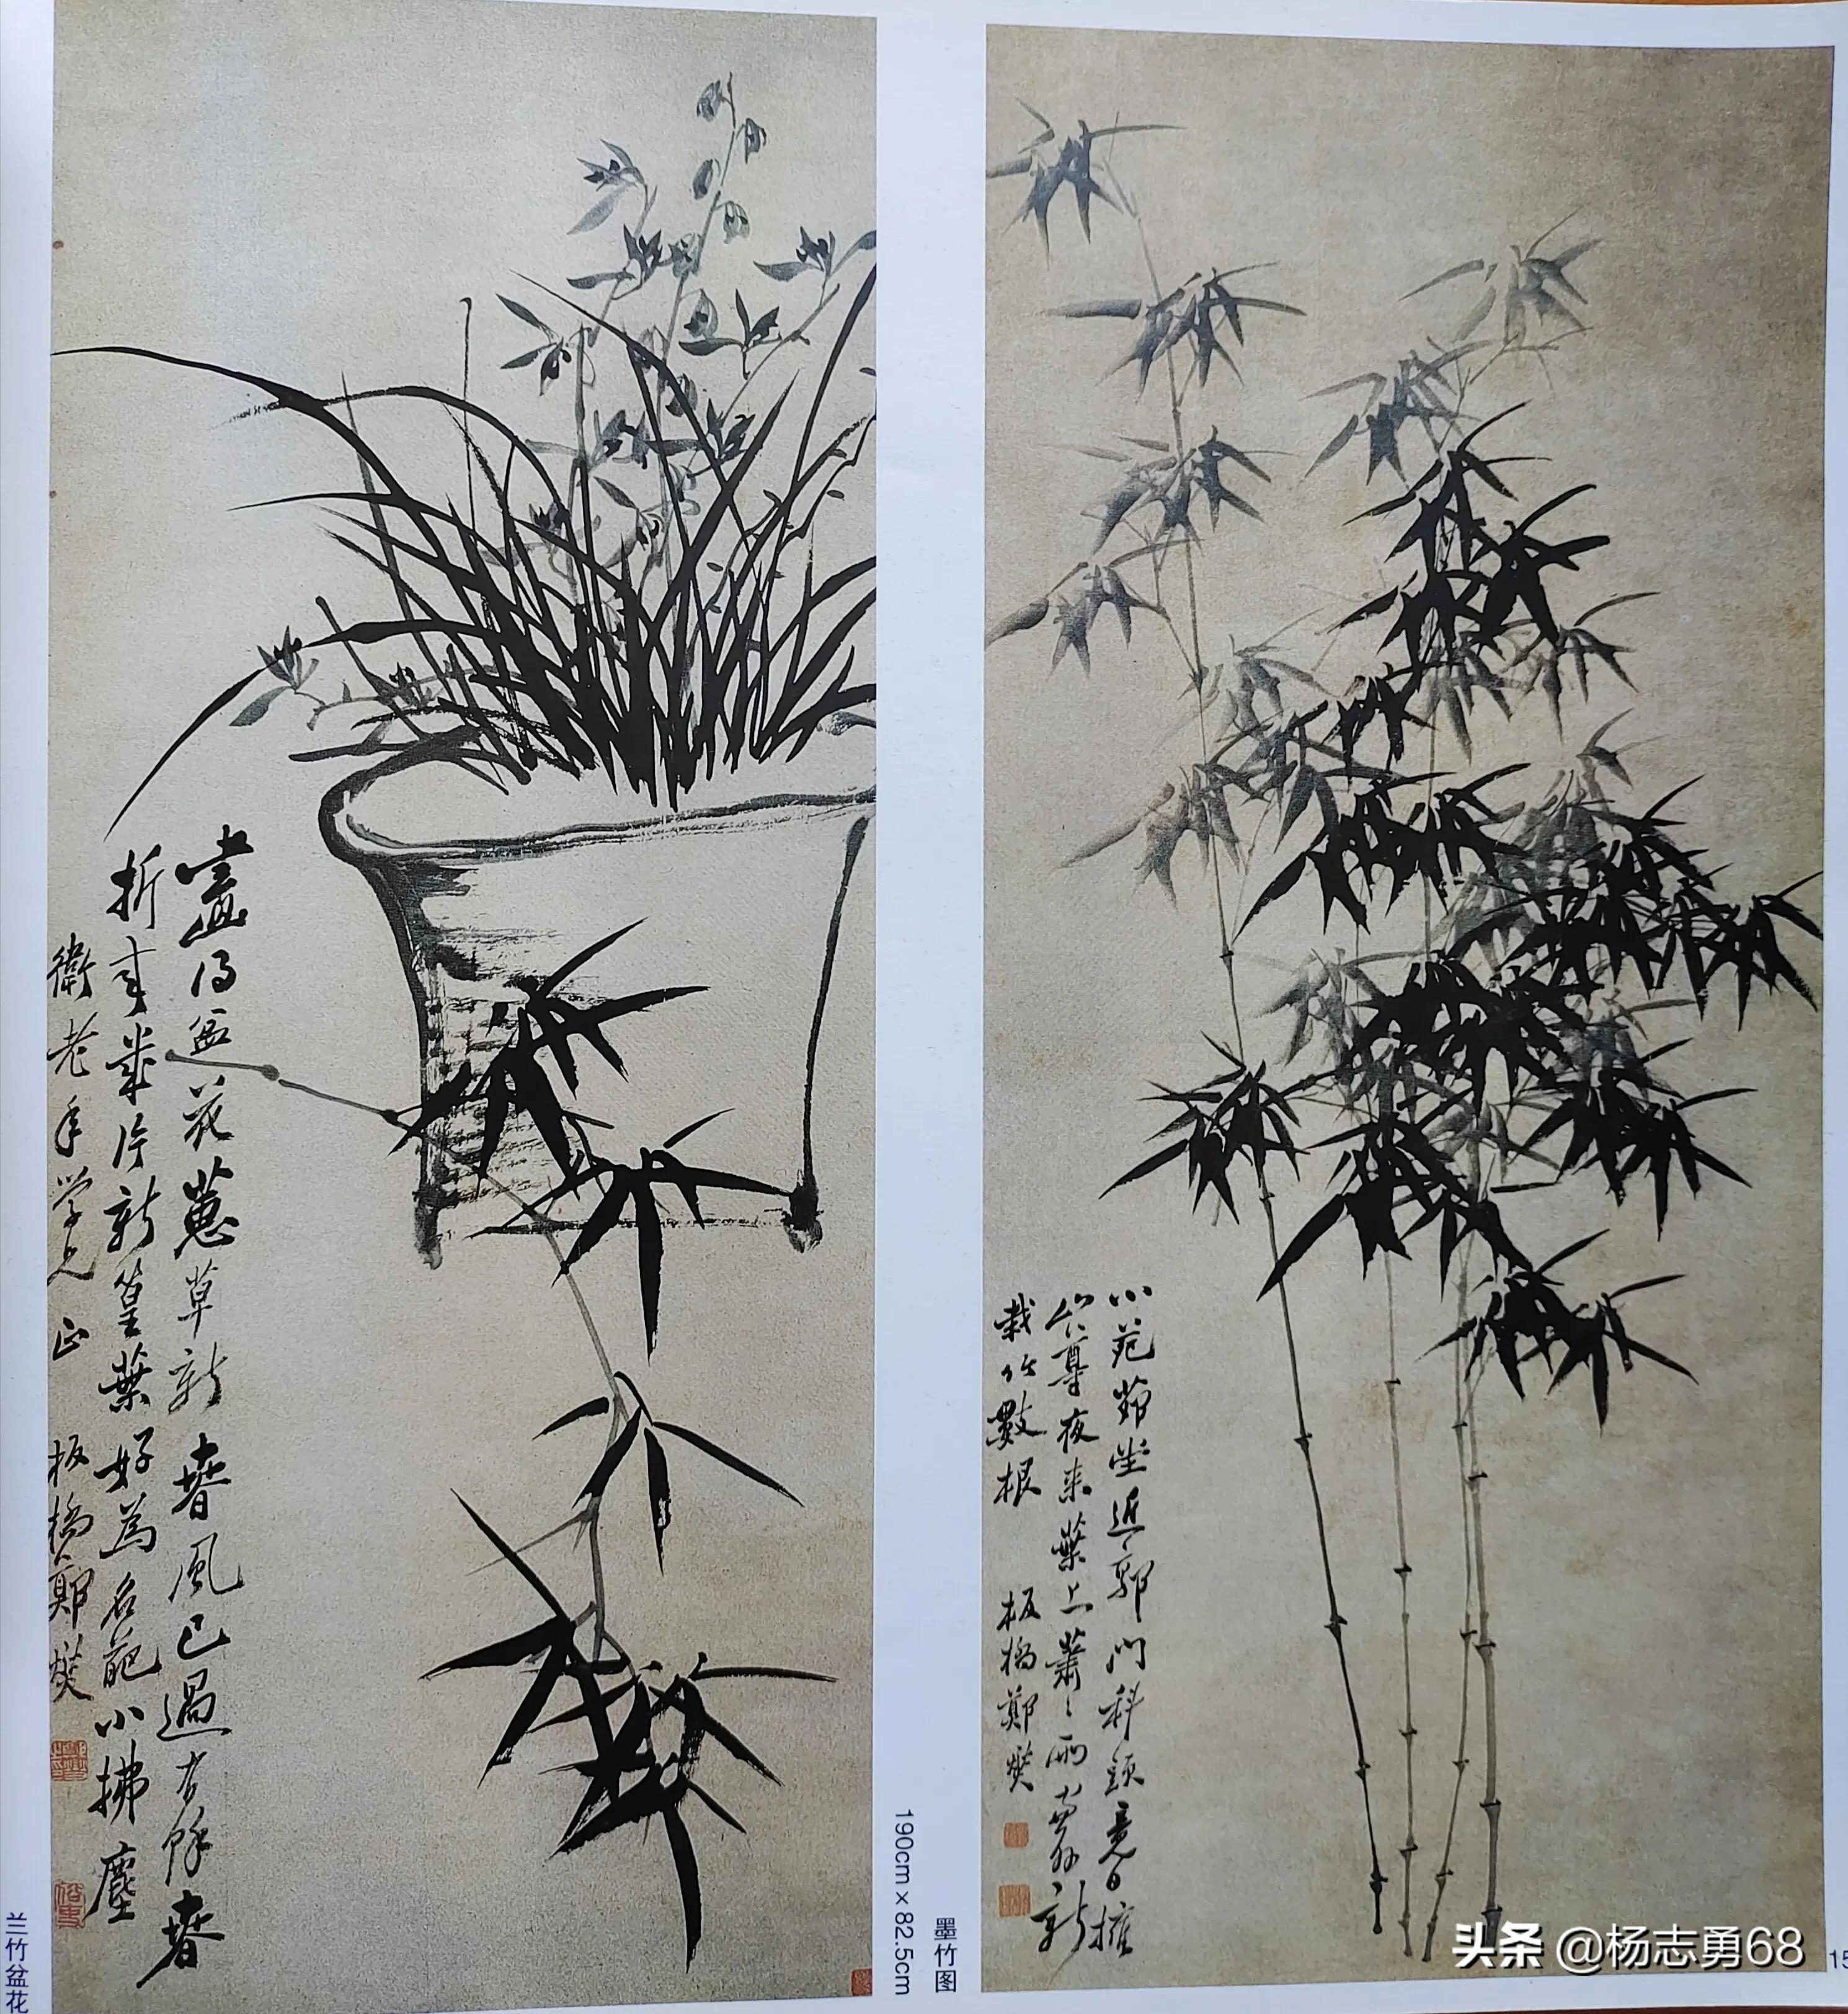 畫得盆花蕙草新 春風已過有餘春
折來幾片新篁葉 好為名葩小拂塵
衛老年學兄正 板橋鄭燮
兰竹盆花
小苑茆堂近郭門科頭竟日擁
山尊夜来葉上蕭〻雨窗外新
栽竹數根 板橋鄭燮
墨竹图
190cm×82.5cm
头条 @杨志勇68